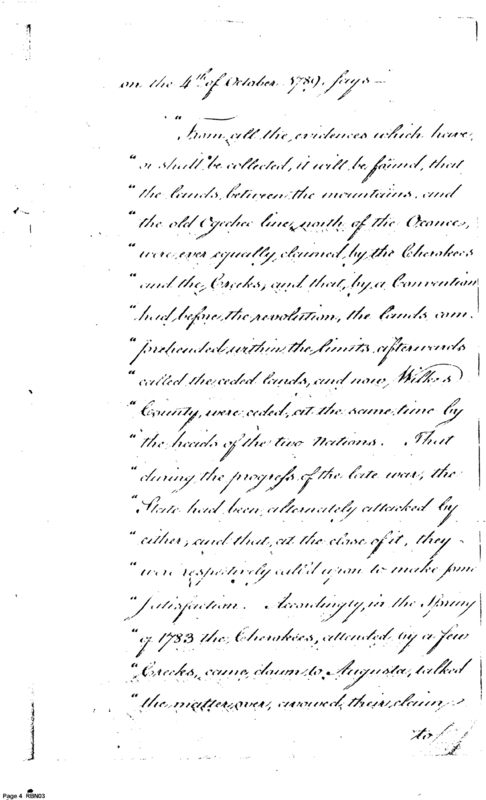 on the 4th of October 1789. says —
"From all the evidences which have
"or shall be collected, it will be found, that
"the lands between the mountains and
"the old Ogechee line, north of the Oconees,
"were ever equally claimed by the Cherokees
"and the Creeks, and that, by a Convention
"had before the revolution, the lands com-
"prehended within the limits afterwards
"called the ceded lands, and now, Wilkes
"County, were ceded, at the same time by
"the heads of the two nations. That
"during the progress of the late war, the
"State had been alternately attacked by
"either, and that, at the close of it, they
"were respectively call'd upon to make some
"satisfaction. Accordingly, in the Spring
"of 1783 the Cherokees, attended by a few
"Creeks, came down to Augusta, talked
"the matter over, avowed their claim
to
Page 4 RBN03